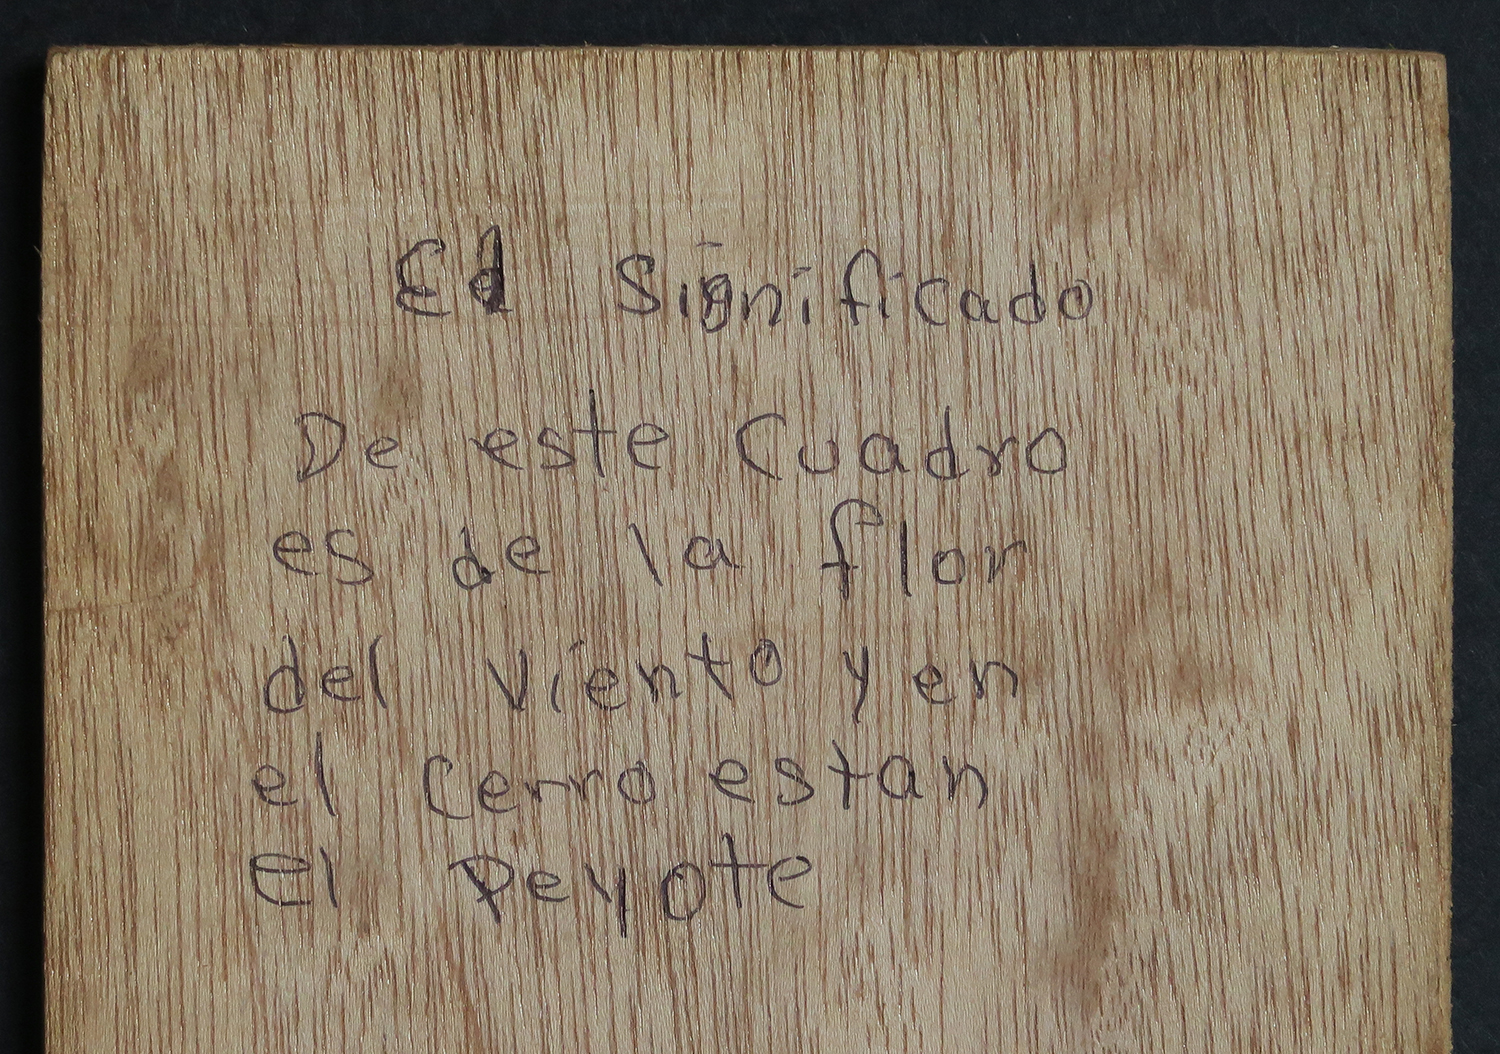 El significado
De este cuadro
es de la flor
del viento y en
el cerro estan
el peyote